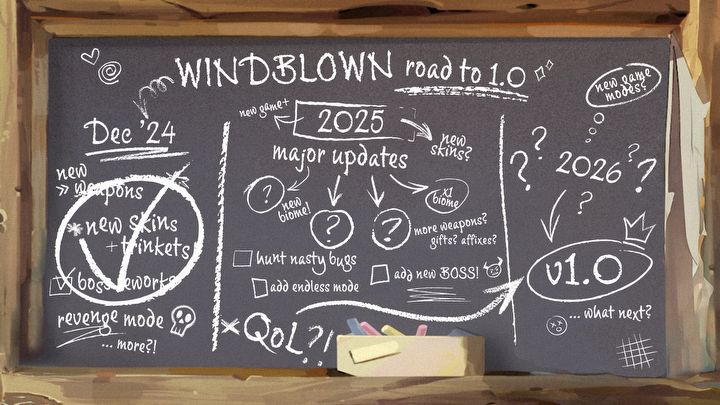 WINDBLOWN road to 1.0
Dec '24
new
» weapons
* new skins
+ trinkets
boss reworks
revenge mode
... more?!
new game+
2025
new
skins?
major updates
?
new
biome!
?
?
x1
biome
more weapons?
gifts? affixes?
hunt nasty bugs
add endless mode
add new BOSS!
x QoL?!
new game
modes?
? ? 2026 ? ?
?
v1.0
... what next?